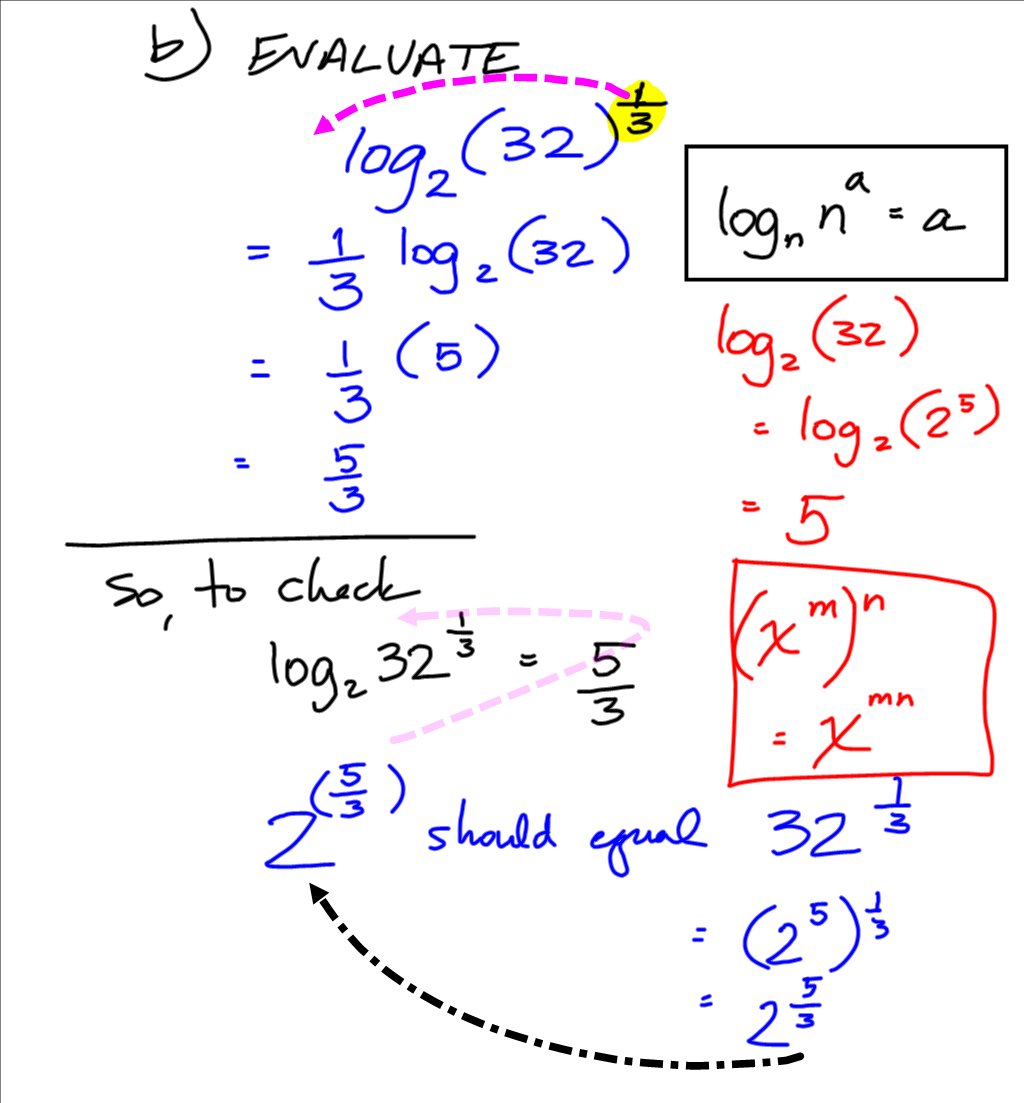 b) EVALUATE
log₂(32)^(1/3)
= 1/3 log₂(32)
= 1/3 (5)
= 5/3
logₙ nᵃ = a
log₂(32)
= log₂(2⁵)
= 5
(x^m)^n
= x^(mn)
So, to check
log₂ 32^(1/3) = 5/3
2^(5/3) should equal 32^(1/3)
= (2⁵)^(1/3)
= 2^(5/3)